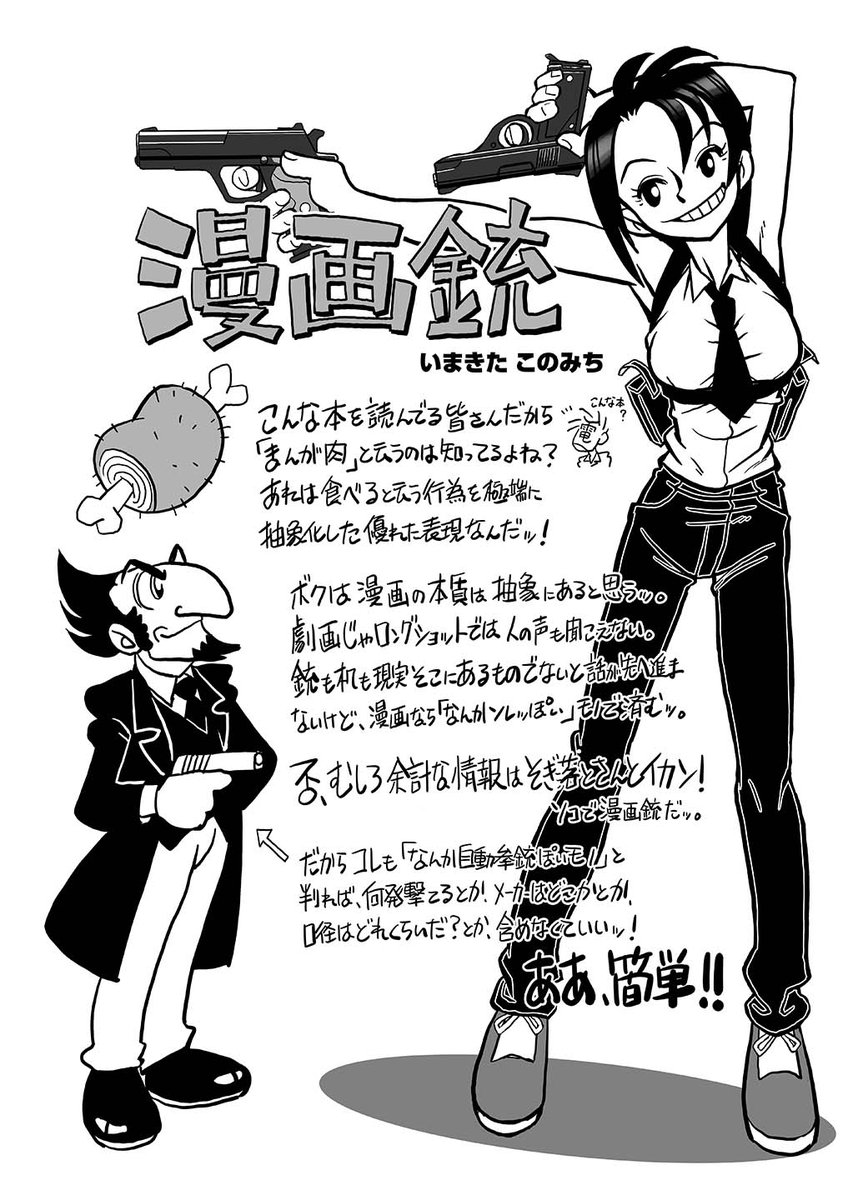 漫画銃
いまきた このみち
こんな本を読んでる皆さんだから
「まんが肉」と云うのは知ってるよね？
あれは食べると云う行為を極端に
抽象化した優れた表現なんだッ！
こんな本？
電
ボクは漫画の本質は抽象にあると思うッ。
劇画じゃロングショットでは人の声も聞こえない。
銃も机も現実そこにあるものでないと話が先へ進ま
ないけど、漫画なら「なんかソレッぽい」モノで済むッ。
否、むしろ余計な情報はそぎ落とさんとイカン！
ソコで漫画銃だッ。
だからコレも「なんか自動拳銃ぽいモノ」と
判れば、何発撃てるとか、メーカーはどこかとか、
口径はどれくらいだ？とか、含めなくていいッ！
ああ、簡単!!